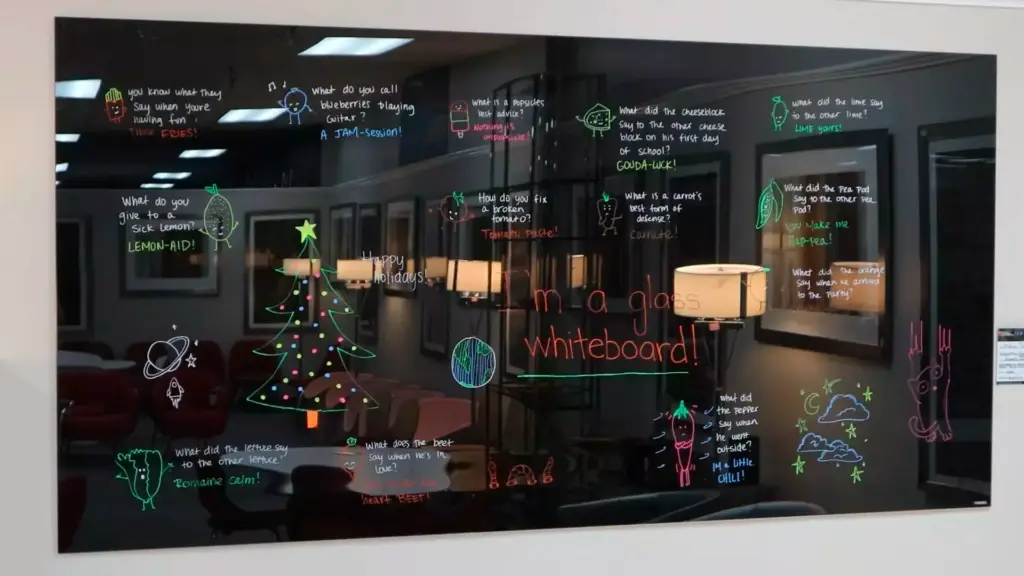 you know what they
say when you're
having fun?
Time FRIES!
What do you call
blueberries playing
guitar?
A JAM-session!
What is a popsicles
best advice?
Nothing is
impopsicle!
What did the cheeseblock
say to the other cheese
block on his first day
of school?
GOUDA-LUCK!
what did the lime say
to the other lime?
LIME YOURS!
What do you
give to a
sick lemon?
LEMON-AID!
How do you fix
a broken
tomato?
Tomato Paste!
What is a carrot's
best form of
defense?
What did the Pea Pod
say to the other Pea
Pod?
You Make me
Hap-pea!
Happy
Holidays!
What did the orange
say when he arrived
to the Party?
I'm a glass
whiteboard!
What did
the Pepper
say when
he went
outside?
I'M a little
CHILI!
What did the lettuce say
to the other lettuce?
Romaine calm!
What does the beet
say when he's in
love?
heart BEET!